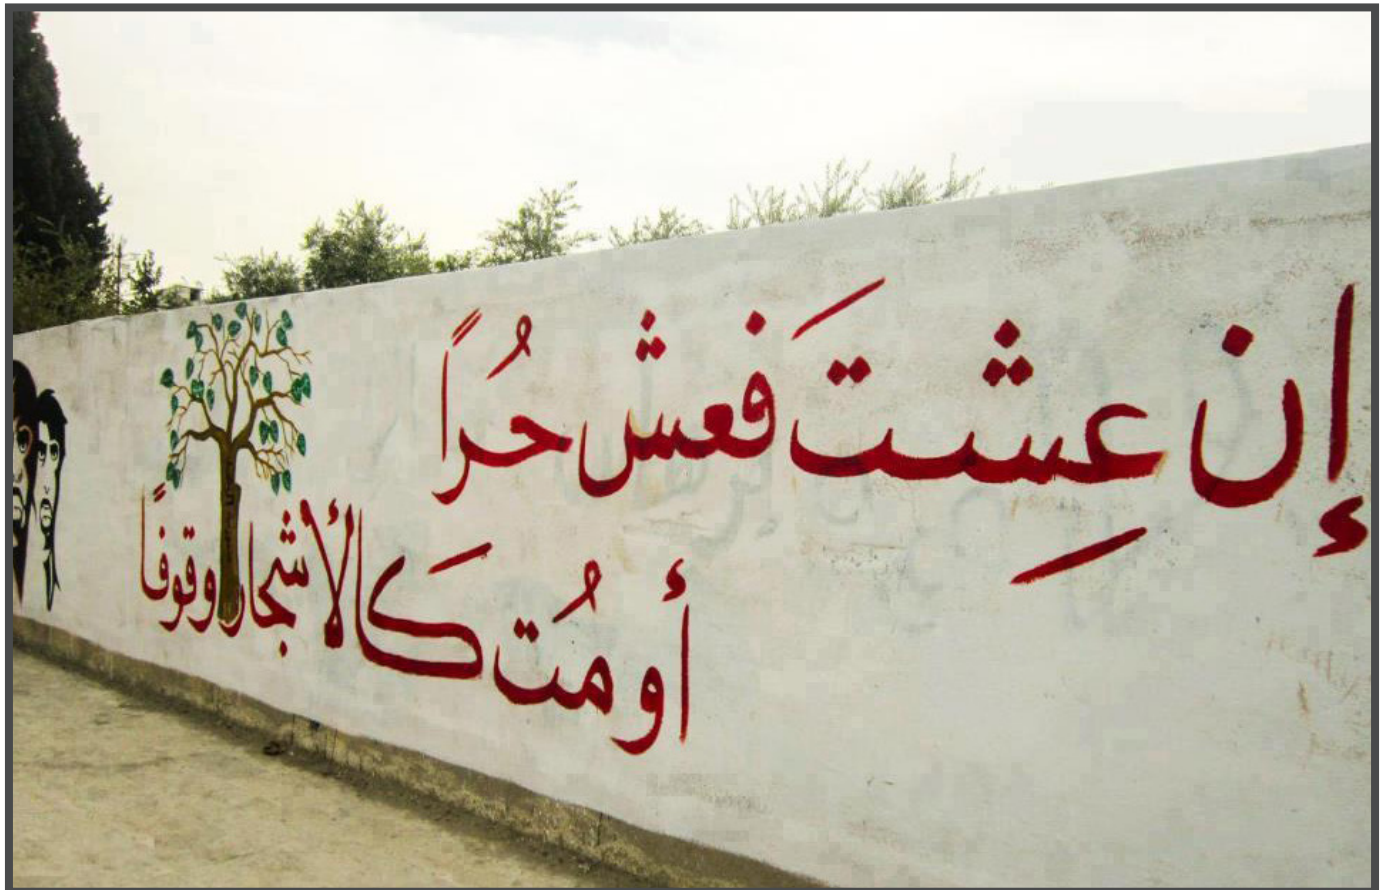 إن عِشتَ فعش حُراً
أو مُت كَالأشجار وقوفاً